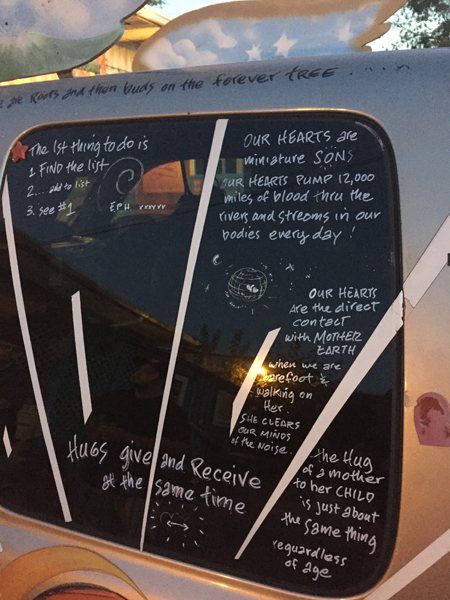 are Roots and then buds on the forever TREE.....
The 1st thing to do is
1. FIND the list
2... add to list
3. see #1
EPH xxxxxx
OUR HEARTS are
miniature SONS
OUR HEARTS PUMP 12,000
miles of blood thru the
rivers and streams in our
bodies every day!
OUR HEARTS
are the direct
contact
with MOTHER
EARTH
when we are
barefoot &
walking on
Her.
SHE CLEARS
OUR MINDS
of the NOISE.
HUGS give and Receive
at the same time
the Hug
of a mother
to her CHILD
is just about
the same thing
reguardless
of age